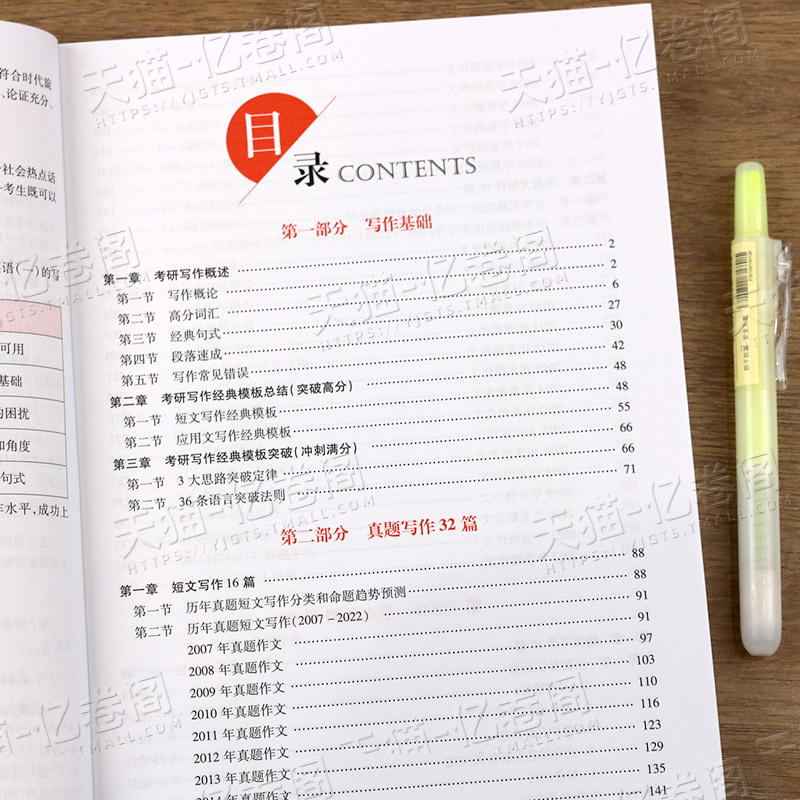 符合时代旋
、论证充分、
社会热点话
考生既可以
语(一)的写
可用
基础
的困扰
和角度
句式
水平,成功上
目录 CONTENTS
第一部分 写作基础
第一章 考研写作概述 2
第一节 写作概论 2
第二节 高分词汇 6
第三节 经典句式 27
第四节 段落速成 30
第五节 写作常见错误 42
第二章 考研写作经典模板总结(突破高分) 48
第一节 短文写作经典模板 48
第二节 应用文写作经典模板 55
第三章 考研写作经典模板突破(冲刺满分) 66
第一节 3 大思路突破定律 66
第二节 36 条语言突破法则 71
第二部分 真题写作 32 篇
第一章 短文写作 16 篇 88
第一节 历年真题短文写作分类和命题趋势预测 88
第二节 历年真题短文写作(2007-2022) 91
2007 年真题作文 91
2008 年真题作文 97
2009 年真题作文 103
2010 年真题作文 110
2011 年真题作文 116
2012 年真题作文 123
2013 年真题作文 129
2014 年真题作文 135
141
天猫—亿卷阁
HTTPS://YJGTS.TMALL.COM